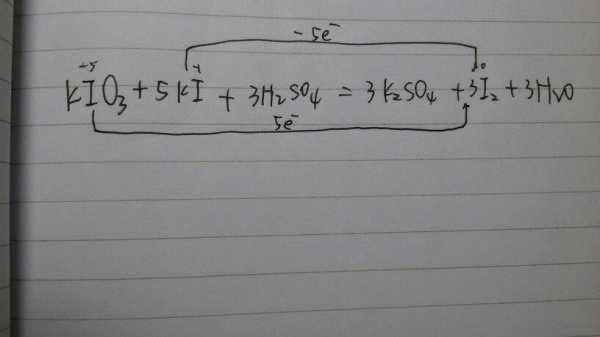 - 5e⁻
+5 -1 0
KIO₃ + 5KI + 3H₂SO₄ = 3K₂SO₄ + 3I₂ + 3H₂O
5e⁻